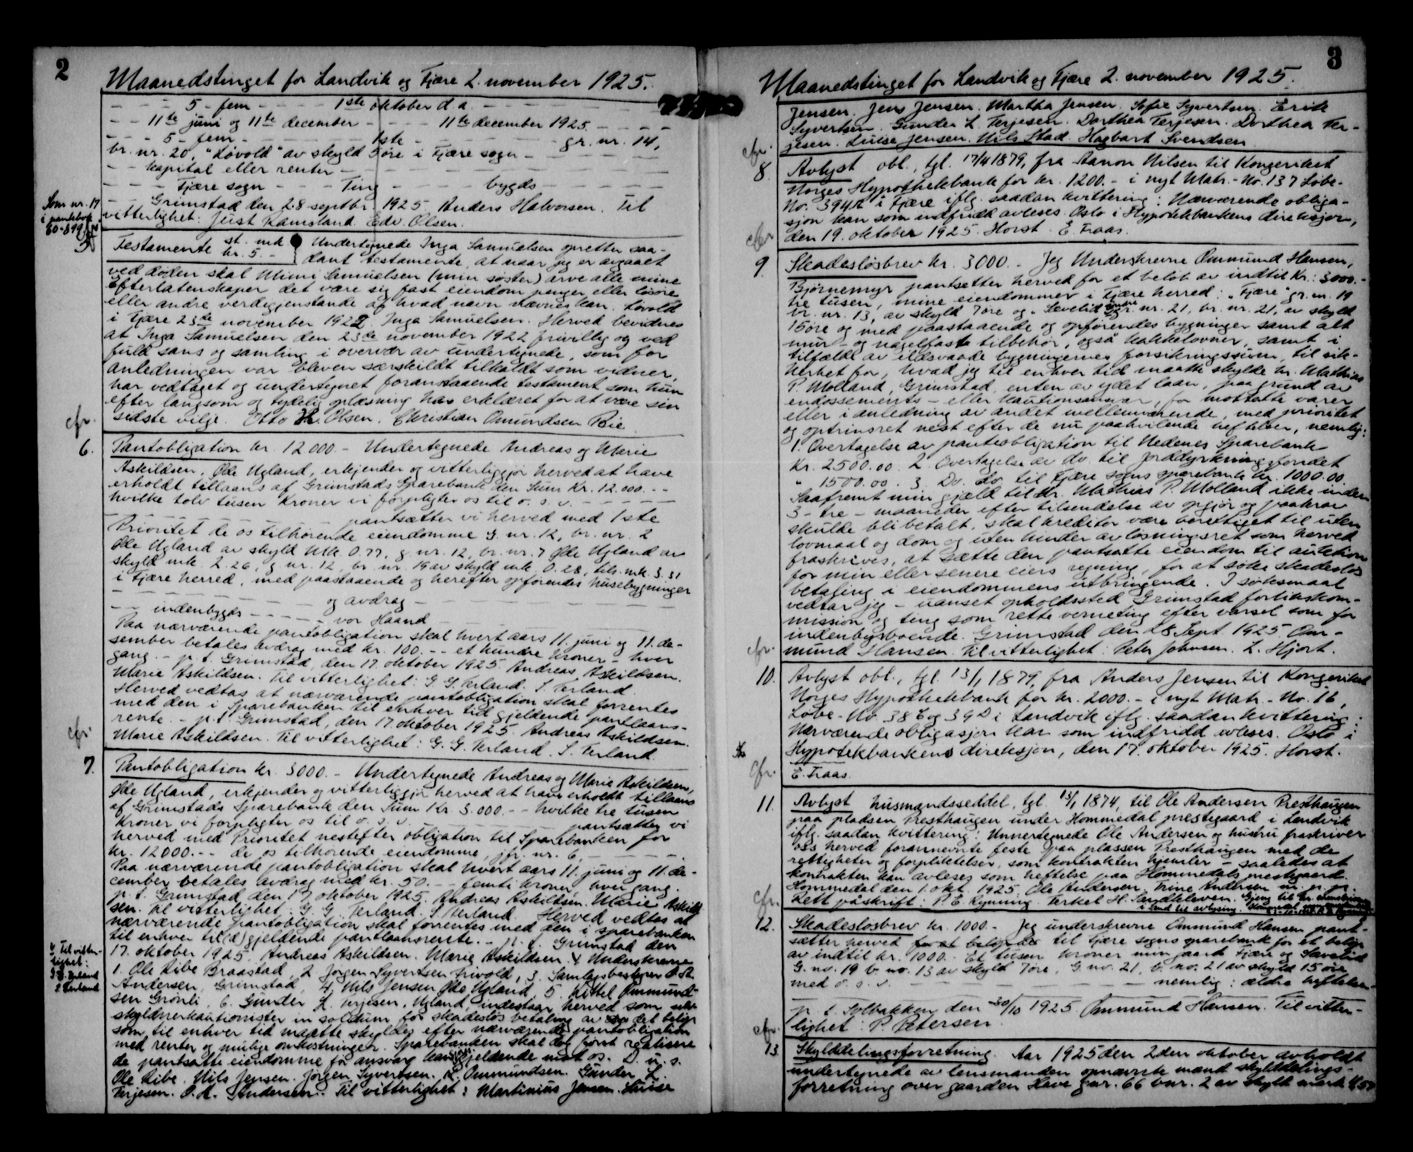 2
Maanedstinget for Landvik og Fjære 2. november 1925.
— — 5 - fem — — 1ste oktober d.a. — — —
— — 11te juni og 11te december — — 11te december 1925 — —
— — 5 - fem — — 1ste — — gr. nr. 14,
br. nr. 20, "Løvold" av skyld 3 øre i Fjære sogn —
— Kapital eller renter — — —
— Fjære sogn — Ting — bygds —
— Grimstad den 28 septbr. 1925 Anders Halvorsen. Til
vitterlighet: Just Ramsland Edv. Olsen.
Som nr. 17
i pantebok
5.
Testamente st. med kr. 5.- Undertegnede Inga Samuelsen opretter saadant testamente, at naar jeg er avgaaet
ved døden skal Mimi Samuelsen (min søster) arve alle mine
Efterlatenskaper det være sig fast eiendom penger eller løsøre
eller andre verdigjenstande og hvad navn nævnes kan. Løvold
i Fjære 23de november 1922 Inga Samuelsen. Herved bevidnes
at Inga Samuelsen den 23de november 1922 frivillig og ved
fuld sans og samling i overvær av undertegnede, som for
anledningen var bleven særskildt tilkaldt som vidner,
har vedtaget og undertegnet foranstaaende testament som hun
efter langsom og tydelig oplæsning har erklæret for at være sin
sidste vilje. Otto Olsen. Christian Omundsen Bie
cfr.
6. Pantobligation kr. 12 000.- Undertegnede Andreas og Marie
Askildsen, Øde Ugland, erkjender og vitterliggjør herved at have
erholdt tillaans af Grimstads Sparebank den Sum Kr. 12.000.--
hvilke tolv tusen Kroner vi forpligter os til o.s.v. — —
— — — pantsætter vi herved med 1ste
Prioritet de os tilhørende eiendomme G. nr. 12, br. nr. 2
Øde Ugland av skyld Mk 0.77, g nr. 12, br. nr. 7 Øde Ugland av
skyld mk 2.26, g nr. 12, br nr. 19 av skyld mk 0.28, tils. mk. 3.31
i Fjære herred, med paastaaende og herefter opførendes husebygninger
— — — og avdrag — — —
— indenbygds — — vor Haand — — —
Paa nærværende pantobligation skal hvert aars 11. juni og 11. december betales avdrag med kr. 100.-- et hundre kroner - hver
gang. — p.t. Grimstad, den 17. oktober 1925 Andreas Askildsen.
Marie Askildsen. Til vitterlighet: G. G. Ørland. S. Ørland.
Herved vedtas at nærværende pantobligation skal forrentes
med den i Sparebanken til enhver tid gjeldende pantlaansrente. - p.t. Grimstad, den 17 oktober 1925 Andreas Askildsen.
Marie Askildsen. Til vitterlighet: G. G. Ørland, S. Ørland
cfr.
7. Pantobligation kr. 3000.- Undertegnede Andreas og Marie Askildsen,
Øde Ugland, erkjender og vitterliggjør herved at have erholdt tillaans
af Grimstads Sparebank den Sum Kr 3.000.-- hvilke tre tusen
Kroner vi forpligter os til o.s.v. — — pantsætter vi
herved med Prioritet nestefter obligation til Sparebanken for
kr. 12000.-- de os tilhørende eiendomme, jfr. nr. 6, — —
Paa nærværende pantobligation skal hvert aars 11. juni og 11. december betales avdrag med kr. 50.-- femti kroner hver gang.
p.t. Grimstad, den 17 oktober 1925. Andreas Askildsen. Marie Askildsen. Til vitterlighet: G. G. Ørland, S. Ørland. Herved vedtas at
nærværende pantobligation skal forrentes med den i sparebanken
til enhver tid gjeldende pantlaansrente. - p.t. Grimstad den
17. oktober 1925. Andreas Askildsen. Marie Askildsen. Underskrevne
1. Ole Libe Braastad, 2 Jørgen Syvertsen Trivold, 3.
Andersen, Grimstad, 4, Nils Jensen Øde Ugland, 5. Kittel Ommundsen Grønli, 6. Gunder L. Terjesen, Ugland indestaar herved som selvskyldnerkautionister in solidum for skadesløs betaling av det beløp
som til enhver tid maatte skyldes efter nærværende pantobligation
med renter og mulige omkostninger. Sparebanken skal dog først realisere
de pantsatte eiendomme før ansvar kan gjøres gjeldende mot os. D. u. s.
Ole Libe. Nils Jensen. Jørgen Syvertsen. K. Ommundsen. Gunder L.
Terjesen. Andersen. Til vitterlighet: Martinius Jensen. Luise
Til vitterlighet:
3
Maanedstinget for Landvik og Fjære 2. november 1925.
Jensen, Jens Jensen. Martha Jensen. Sofie Syvertsen. Erik
Syvertsen. Gunder L. Terjesen. Dorthea Terjesen. Dorthea Terjesen. Luise Jensen. Nils Stad. Hagbart Svendsen
cfr.
8. Avlyst obl. tgl. 17/4 1879, fra Aanon Nilsen til Kongeriket
Norges Hypothekbank for kr. 1200.- i nyt Matr.-No. 137 Løbe-
No. 394 i Fjære iflg. saadan kvittering: Nærværende obligasjon kan som indfridd avleses. Oslo i Hypotekbankens direksjon,
den 19. oktober 1925 Horst. E. Traas.
cfr
9. Skadesløsbrev kr. 3000.- Jeg Underskrevne Ommund Hansen,
Bjørnemyr pantsetter herved for et beløb av indtil Kr. 3000.-
tre tusen, mine eiendommer i Fjære herred: "Fjære" gr. nr. 19
br. nr. 13, av skyld 7 øre og "Savelid" gr. nr. 21, br. nr. 21, av skyld
15 øre og med paastaaende og opførendes bygninger samt alt
mur- og nagelfast tilbehør, også kakkelovner, samt i
tilfælde av ildsvaade bygningernes forsikringssum, til sikkerhet for, hvad jeg til enhver tid maatte skylde hr. Mathias
P. Molland, Grimstad, enten av ydet laan, paa grund av
endossements- eller kautionsansvar, for mottatte varer
eller i anledning av andet mellemværende, med prioritet
og optrinsret nest efter de nu paahvilende heftelser, nemlig:
1. Overtagelse av panteobligation til Nedenes Sparebank
kr. 2500.00. 2. Overtagelse av do. til Jorddyrkningsfondet
" 1500.00. 3. Do. do. til Fjære sogns sparebank kr. 1000.00.
Saafremt min gjæld til hr. Mathias P. Molland ikke inden
3 - tre - maaneder efter tilsendelse av opgjør og paakrav
skulde bli betalt, skal kreditor være berettiget til uten
lovmaal og dom og uten hinder av løsningsret som herved
fraskrives, at sætte den pantsatte eiendom til auktion
for min eller senere eiers regning, for at søke skadesløs
betaling i eiendommens utbringende. I søksmaal
vedtar jeg - uanset opholdssted Grimstad forlikskommission og ting som rette verneting efter varsel som for
indenbygsboende. Grimstad den 28 Sept. 1925 Ommund Hansen. Til vitterlighet: Peter Johnsen. L. Hjort.
cfr.
10. Avlyst obl., tgl 13/1 1879, fra Anders Jensen til Kongeriket
Norges Hypothekbank for kr. 2000.- i nyt Matr.-No. 16,
Løbe-No. 38 og 39 i Landvik iflg. saadan kvittering:
Nærværende obligasjon kan som indfridd avleses. Oslo i
Hypotekbankens direksjon, den 17. oktober 1925. Horst.
E. Traas.
cfr.
11. Avlyst husmandsseddel, tgl. 13/1 1874, til Ole Andersen Presthaugen
paa pladsen Presthaugen under Hommedal prestegaard i Landvik
iflg. saadan kvittering: Unnertegnede Ole Andersen og hustru fraskriver
oss herved forannevnte feste paa plassen Presthaugen med de
rettigheter og forpliktelser, som kontrakten hjemler - saaledes at
kontrakten kan avleses som heftelse paa Hommedals prestgaard.
Hommedal den 1. okt. 1925. Ole Andersen. Trine Andersen m. p. p.
Rett påskrift: P. E. Kynning. Terkel H. Sandkleven.
cfr.
12. Skadesløsbrev kr. 1000.- Jeg underskrevne Ommund Hansen pantsætter herved til Fjære sogns sparebank for et beløp
av indtil kr. 1000.- Et tusen kroner min gaard Fjære og Savelid
G. no. 19 b. no. 13 av skyld 7 øre, G. no. 21, b. no. 21 av skyld 15 øre
med o.s.v. — — — nemlig: ældre heftelser
— — —
p.t. Solbakken den 30/10 1925 Ommund Hansen Til vitterlighet: P. Petersen
cfr.
13 Skylddelingsforretning. Aar 1925 den 2den oktober avholdt
undertegnede av lensmanden opnævnte mænd skylddelingsforretning over gaarden Leve gnr. 66 bnr. 2 av skyld mark